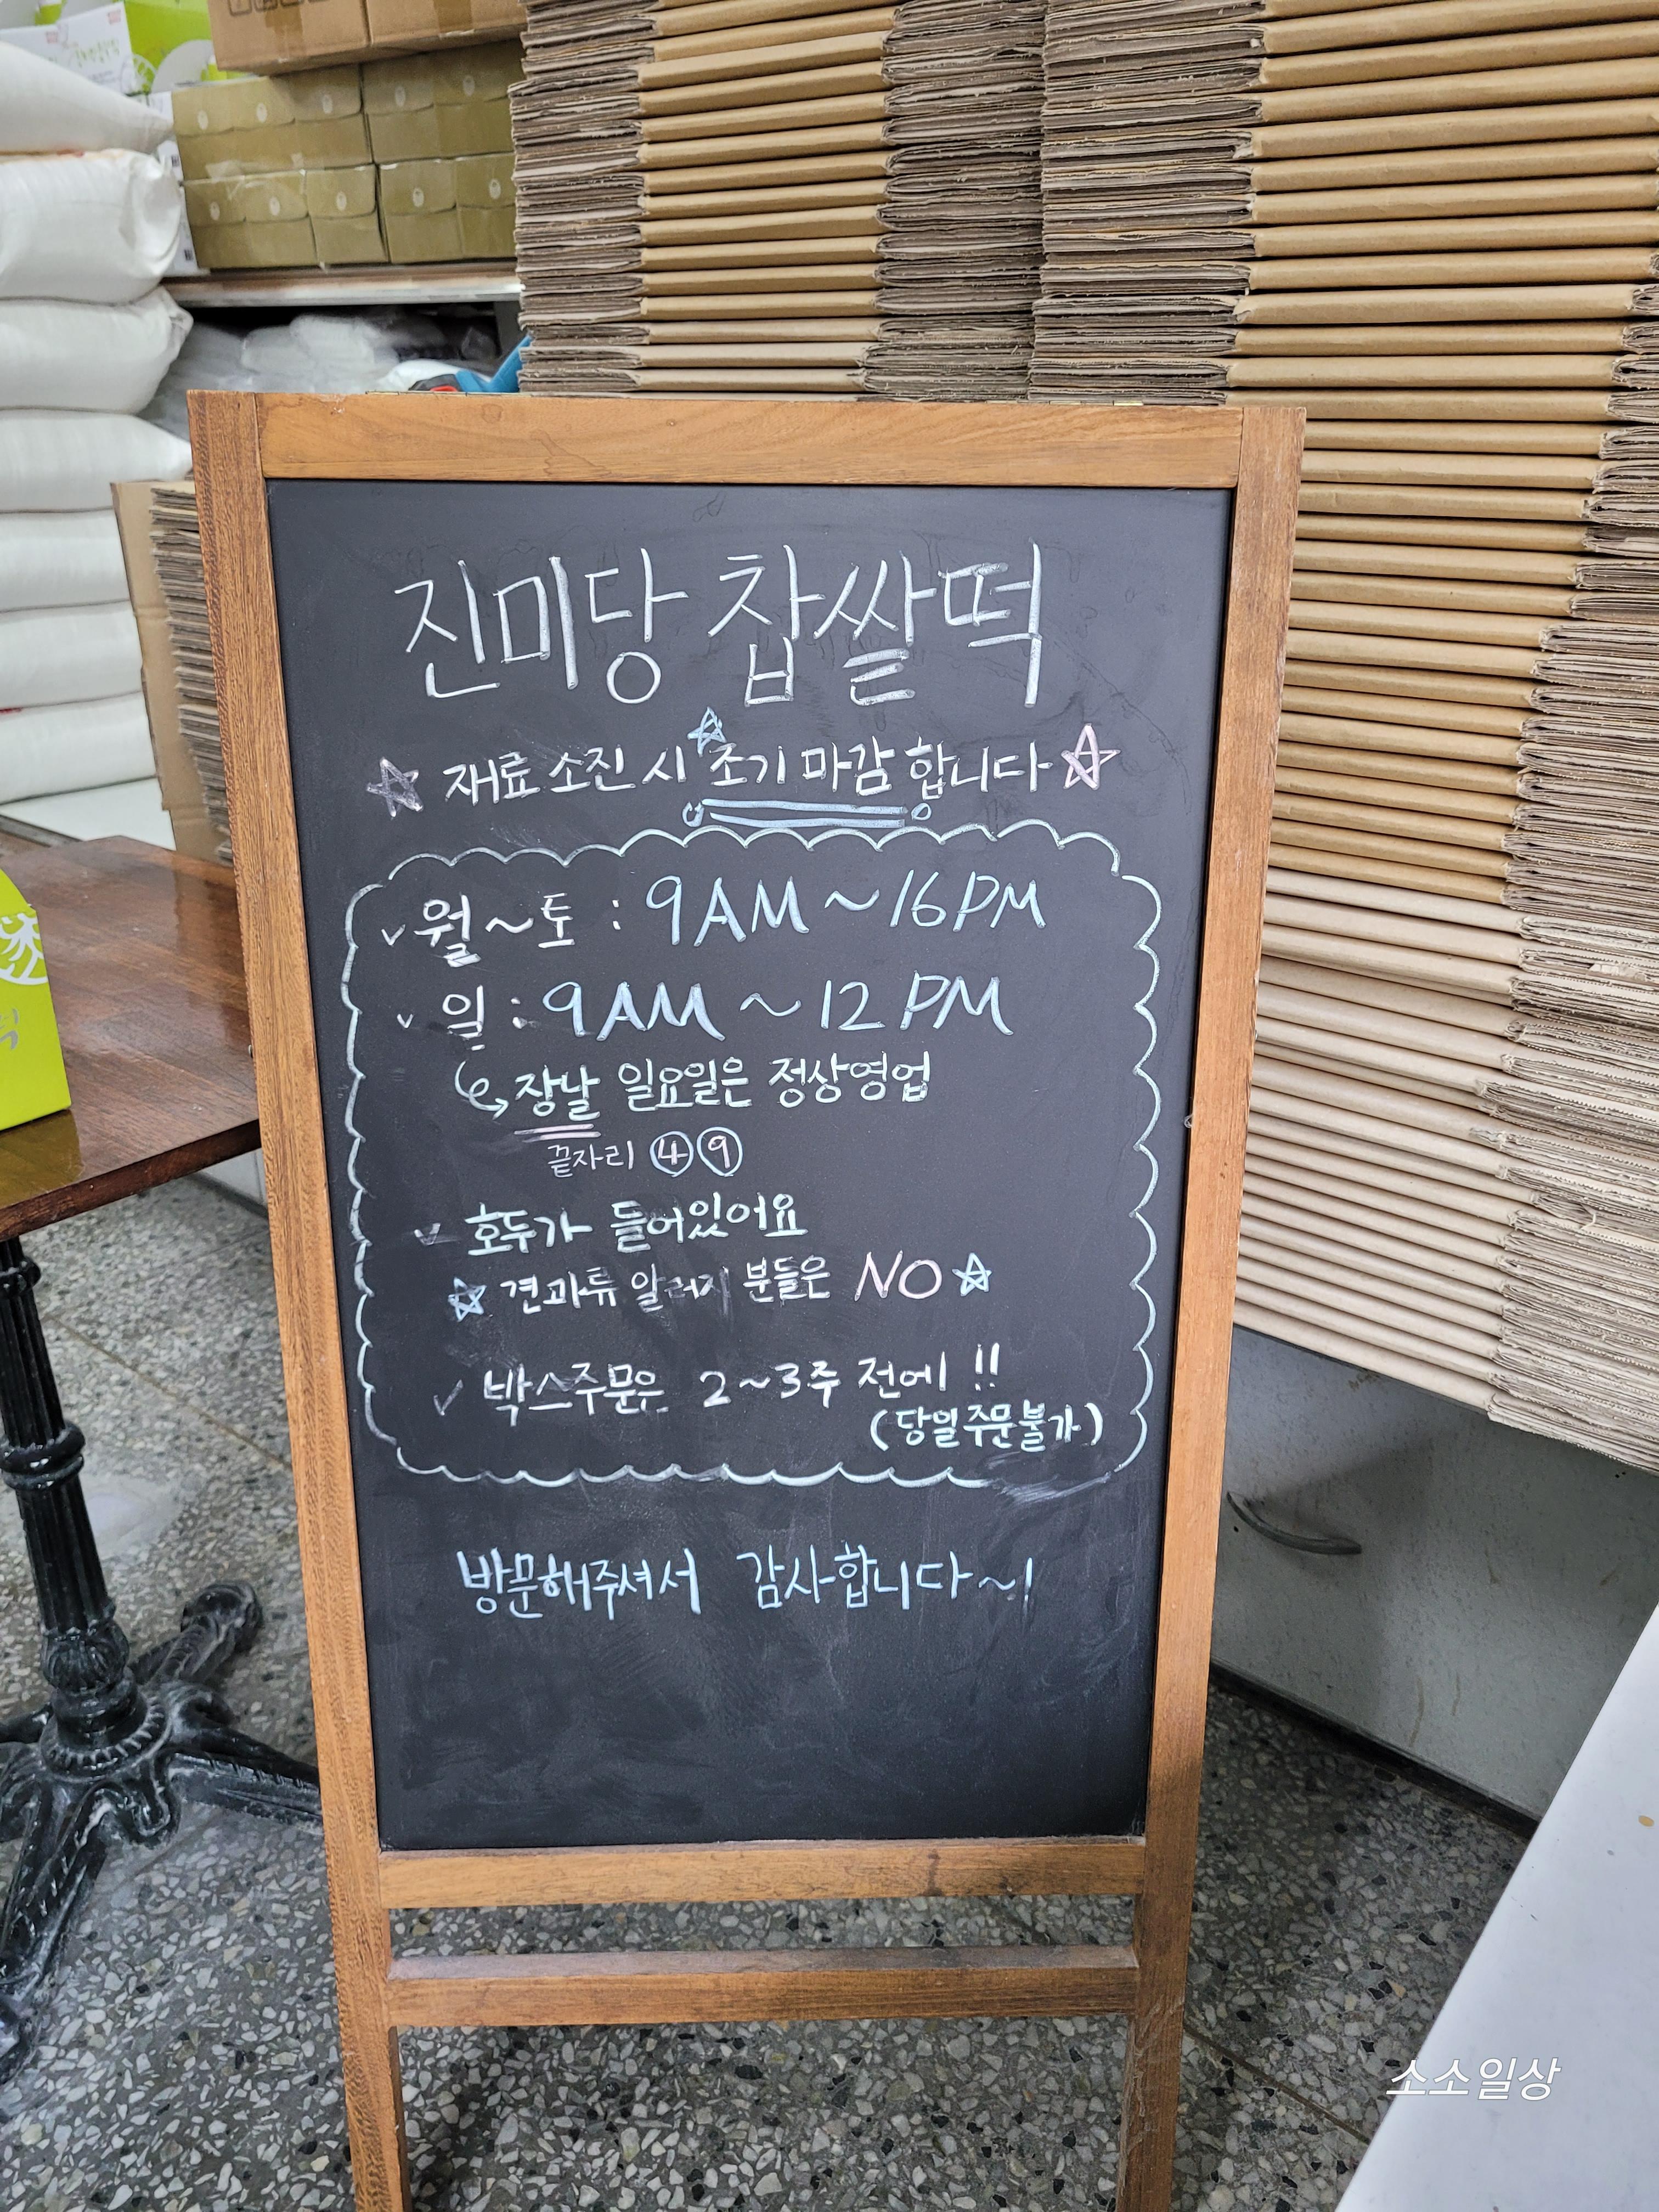 진미당 찹쌀떡
☆ 재료 소진 시 조기 마감 합니다 ☆
✓ 월 ~ 토 : 9AM ~ 16PM
✓ 일 : 9AM ~ 12 PM
↳ 장날 일요일은 정상영업
끝자리 ④⑨
✓ 호두가 들어있어요
☆ 견과류 알러지 분들은 NO ☆
✓ 박스주문은 2~3주 전에 !!
(당일주문불가)
방문해주셔서 감사합니다~!
소소일상